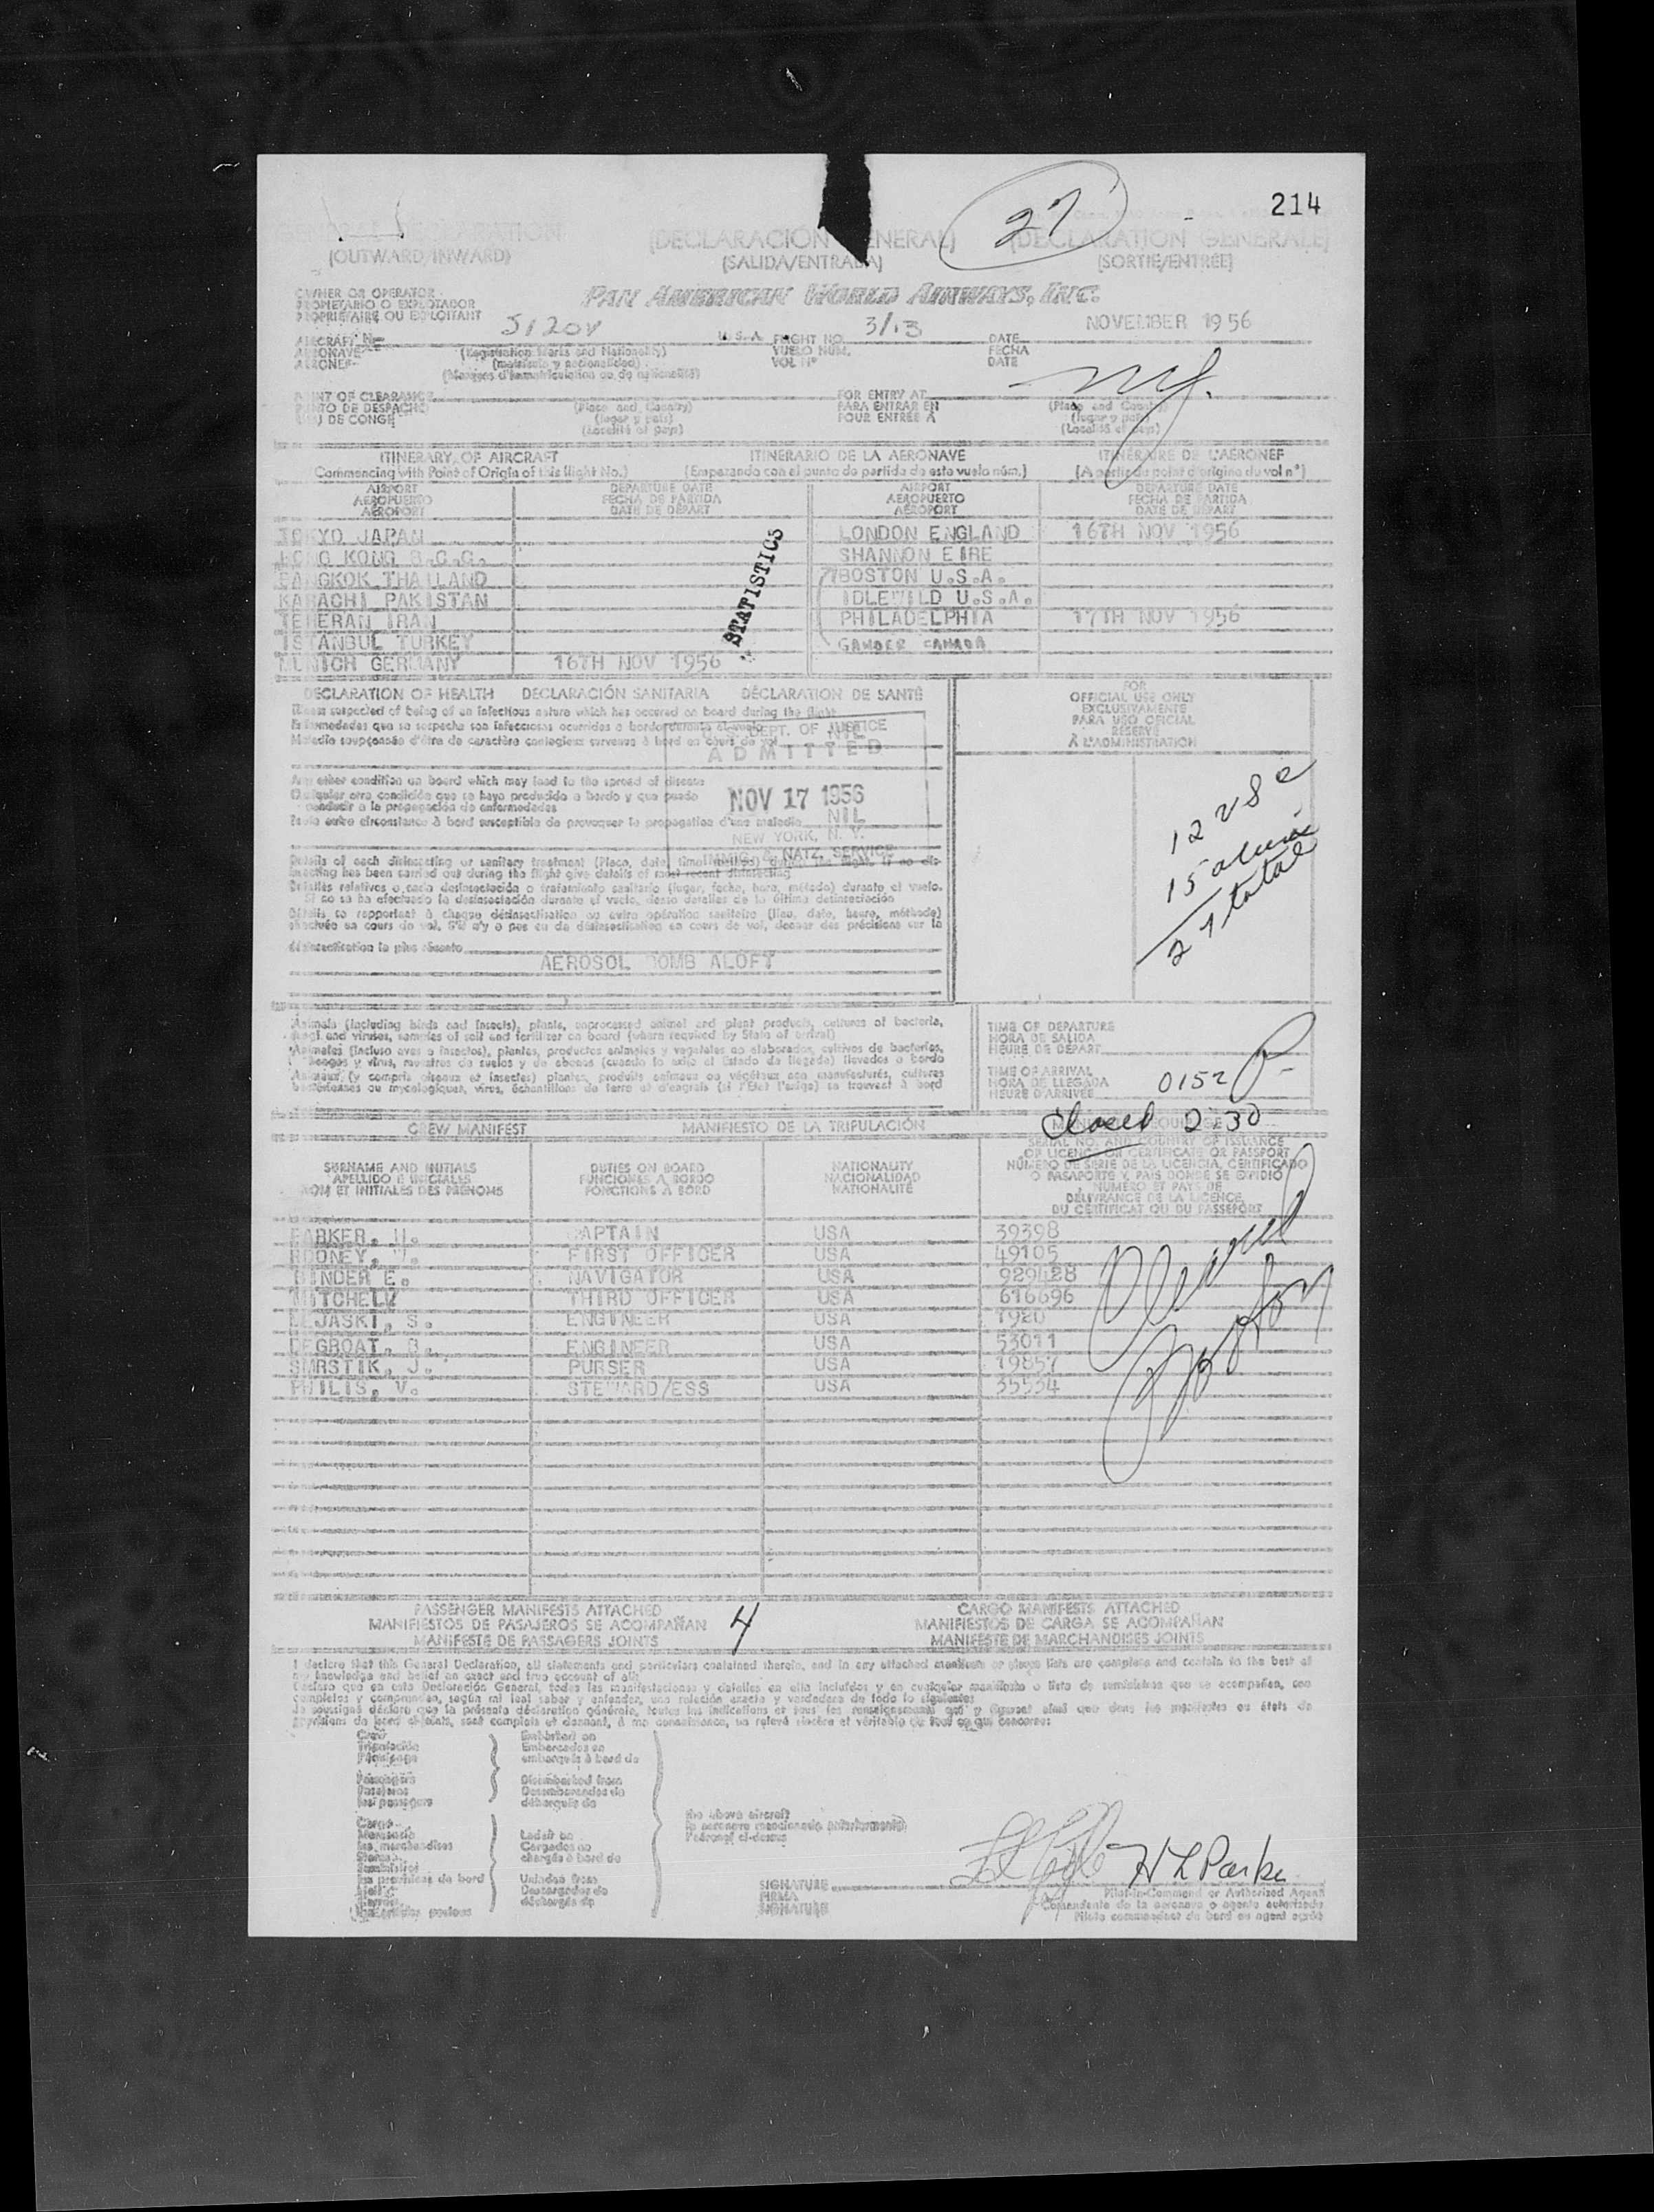 214
27
DECLARATION (DECLARACIÓN GENERAL) (DECLARATION GENERALE)
(OUTWARD/INWARD) (SALIDA/ENTRADA) (SORTIE/ENTRÉE)
OWNER OR OPERATOR
PROPIETARIO O EXPLOTADOR
PROPRIÉTAIRE OU EXPLOITANT
PAN AMERICAN WORLD AIRWAYS, INC.
AIRCRAFT
AERONAVE
AERONEF
U.S.A.
(Registration Marks and Nationality)
(matrícula y nacionalidad)
(Marques d'immatriculation ou de nationalité)
FLIGHT NO. 3/13
VUELO NÚM.
VOL Nº
DATE NOVEMBER 1956
FECHA
DATE
POINT OF CLEARANCE
PUNTO DE DESPACHO
LIEU DE CONGÉ
(Place and Country)
(lugar y país)
(Localité et pays)
FOR ENTRY AT
PARA ENTRAR EN
POUR ENTRÉE À
(Place and Country)
(lugar y país)
(Localité et pays)
ITINERARY OF AIRCRAFT ITINERARIO DE LA AERONAVE ITINÉRAIRE DE L'AÉRONEF
(Commencing with Point of Origin of this flight No.) (Empezando con el punto de partida de este vuelo núm.) (A partir du point d'origine du vol nº)
AIRPORT DEPARTURE DATE AIRPORT DEPARTURE DATE
AEROPUERTO FECHA DE PARTIDA AEROPUERTO FECHA DE PARTIDA
AÉROPORT DATE DE DÉPART AÉROPORT DATE DE DÉPART
TOKYO JAPAN LONDON ENGLAND 16TH NOV 1956
HONG KONG B.C.C. SHANNON EIRE
BANGKOK THAILAND BOSTON U.S.A.
KARACHI PAKISTAN IDLEWILD U.S.A.
TEHERAN IRAN PHILADELPHIA 17TH NOV 1956
ISTANBUL TURKEY GANDER CANADA
MUNICH GERMANY 16TH NOV 1956
STATISTICS
DECLARATION OF HEALTH DECLARACIÓN SANITARIA DÉCLARATION DE SANTÉ
Illness suspected of being of an infectious nature which has occured on board during the flight
Enfermedades que se sospecha son infecciosas ocurridas a bordo durante el vuelo
Maladie soupçonnée d'être de caractère contagieux survenue à bord en cours de vol
NIL
U.S. DEPT. OF JUSTICE
ADMITTED
NOV 17 1956
NEW YORK, N. Y.
IMMIG. & NATZ. SERVICE
Any other condition on board which may lead to the spread of disease
Cualquier otra condición que se haya producido a bordo y que pueda
conducir a la propagación de enfermedades
Toute autre circonstance à bord susceptible de provoquer la propagation d'une maladie NIL
Details of each disinsecting or sanitary treatment (Place, date, time, method) during the flight. If no dis-
insecting has been carried out during the flight give details of most recent disinsecting
Detalles relativos a cada desinsectación o tratamiento sanitario (lugar, fecha, hora, método) durante el vuelo.
Si no se ha efectuado la desinsectación durante el vuelo, dense detalles de la última desinsectación
Détails se rapportant à chaque désinsectisation ou autre opération sanitaire (lieu, date, heure, méthode)
effectuée en cours de vol. S'il n'y a pas eu de désinsectisation en cours de vol, donner des précisions sur la
désinsectisation la plus récente
AEROSOL BOMB ALOFT
FOR
OFFICIAL USE ONLY
EXCLUSIVAMENTE
PARA USO OFICIAL
RÉSERVÉ
À L'ADMINISTRATION
12 USC
15 alien
27 total
Animals (including birds and insects), plants, unprocessed animal and plant products, cultures of bacteria,
fungi and viruses, samples of soil and fertilizer on board (where required by State of arrival)
Animales (incluso aves e insectos), plantas, productos animales y vegetales no elaborados, cultivos de bacterias,
hongos y virus, muestras de suelos y de abonos (cuando lo exija el Estado de llegada) llevados a bordo
Animaux (y compris oiseaux et insectes) plantes, produits animaux ou végétaux non manufacturés, cultures
bactériennes ou mycologiques, virus, échantillons de terre et d'engrais (si l'État l'exige) se trouvant à bord
TIME OF DEPARTURE
HORA DE SALIDA
HEURE DE DÉPART
TIME OF ARRIVAL
HORA DE LLEGADA 0152
HEURE D'ARRIVÉE
Closed 2:30
CREW MANIFEST MANIFIESTO DE LA TRIPULACIÓN
SURNAME AND INITIALS
APELLIDO E INICIALES
NOM ET INITIALES DES PRÉNOMS
DUTIES ON BOARD
FUNCIONES A BORDO
FONCTIONS À BORD
NATIONALITY
NACIONALIDAD
NATIONALITÉ
SERIAL NO. AND COUNTRY OF ISSUANCE
OF LICENCE OR CERTIFICATE OR PASSPORT
NÚMERO DE SERIE DE LA LICENCIA, CERTIFICADO
O PASAPORTE Y PAÍS DONDE SE EXPIDIÓ
NUMÉRO ET PAYS DE
DÉLIVRANCE DE LA LICENCE,
DU CERTIFICAT OU DU PASSEPORT
PARKER, H. CAPTAIN USA 39398
ROONEY, FIRST OFFICER USA 49105
BINDER E. NAVIGATOR USA 929428
MITCHELL THIRD OFFICER USA 616696
LEJASKI, S. ENGINEER USA 1980
DEGROAT, B. ENGINEER USA 53011
SMRSTIK, J. PURSER USA 19857
PHILIS, V. STEWARD/ESS USA 35534
PASSENGER MANIFESTS ATTACHED CARGO MANIFESTS ATTACHED
MANIFIESTOS DE PASAJEROS SE ACOMPAÑAN 4 MANIFIESTOS DE CARGA SE ACOMPAÑAN
MANIFESTE DE PASSAGERS JOINTS MANIFESTE DE MARCHANDISES JOINTS
I declare that this General Declaration, all statements and particulars contained therein, and in any attached manifests or stores lists are complete and contain to the best of
my knowledge and belief an exact and true account of all:
Declaro que en esta Declaración General, todas las manifestaciones y detalles en ella incluídos y en cualquier manifiesto o lista de suministros que se acompañen, son
completos y comprenden, según mi leal saber y entender, una relación exacta y verdadera de todo lo siguiente:
Je soussigné déclare que la présente déclaration générale, toutes les indications et tous les renseignements qui y figurent ainsi que dans les manifestes ou états de
provisions de bord ci-joints, sont complets et donnent, à ma connaissance, un relevé sincère et véritable de tout ce qui concerne:
Crew
Tripulación
Passengers
Pasajeros
les passagers
Cargo
Mercancía
les marchandises
Stores
les provisions de bord
Embarked on
Embarcados en
embarqués à bord de
Disembarked from
Desembarcados de
débarqués de
Laden on
Cargados en
chargés à bord de
Unladen from
Descargados de
déchargés de
the above aircraft
la aeronave mencionada anteriormente
l'aéronef ci-dessus
SIGNATURE H L Parker
FIRMA
SIGNATURE
Pilot-in-Command or Authorized Agent
Comandante de la aeronave o agente autorizado
Pilote commandant de bord ou agent agréé